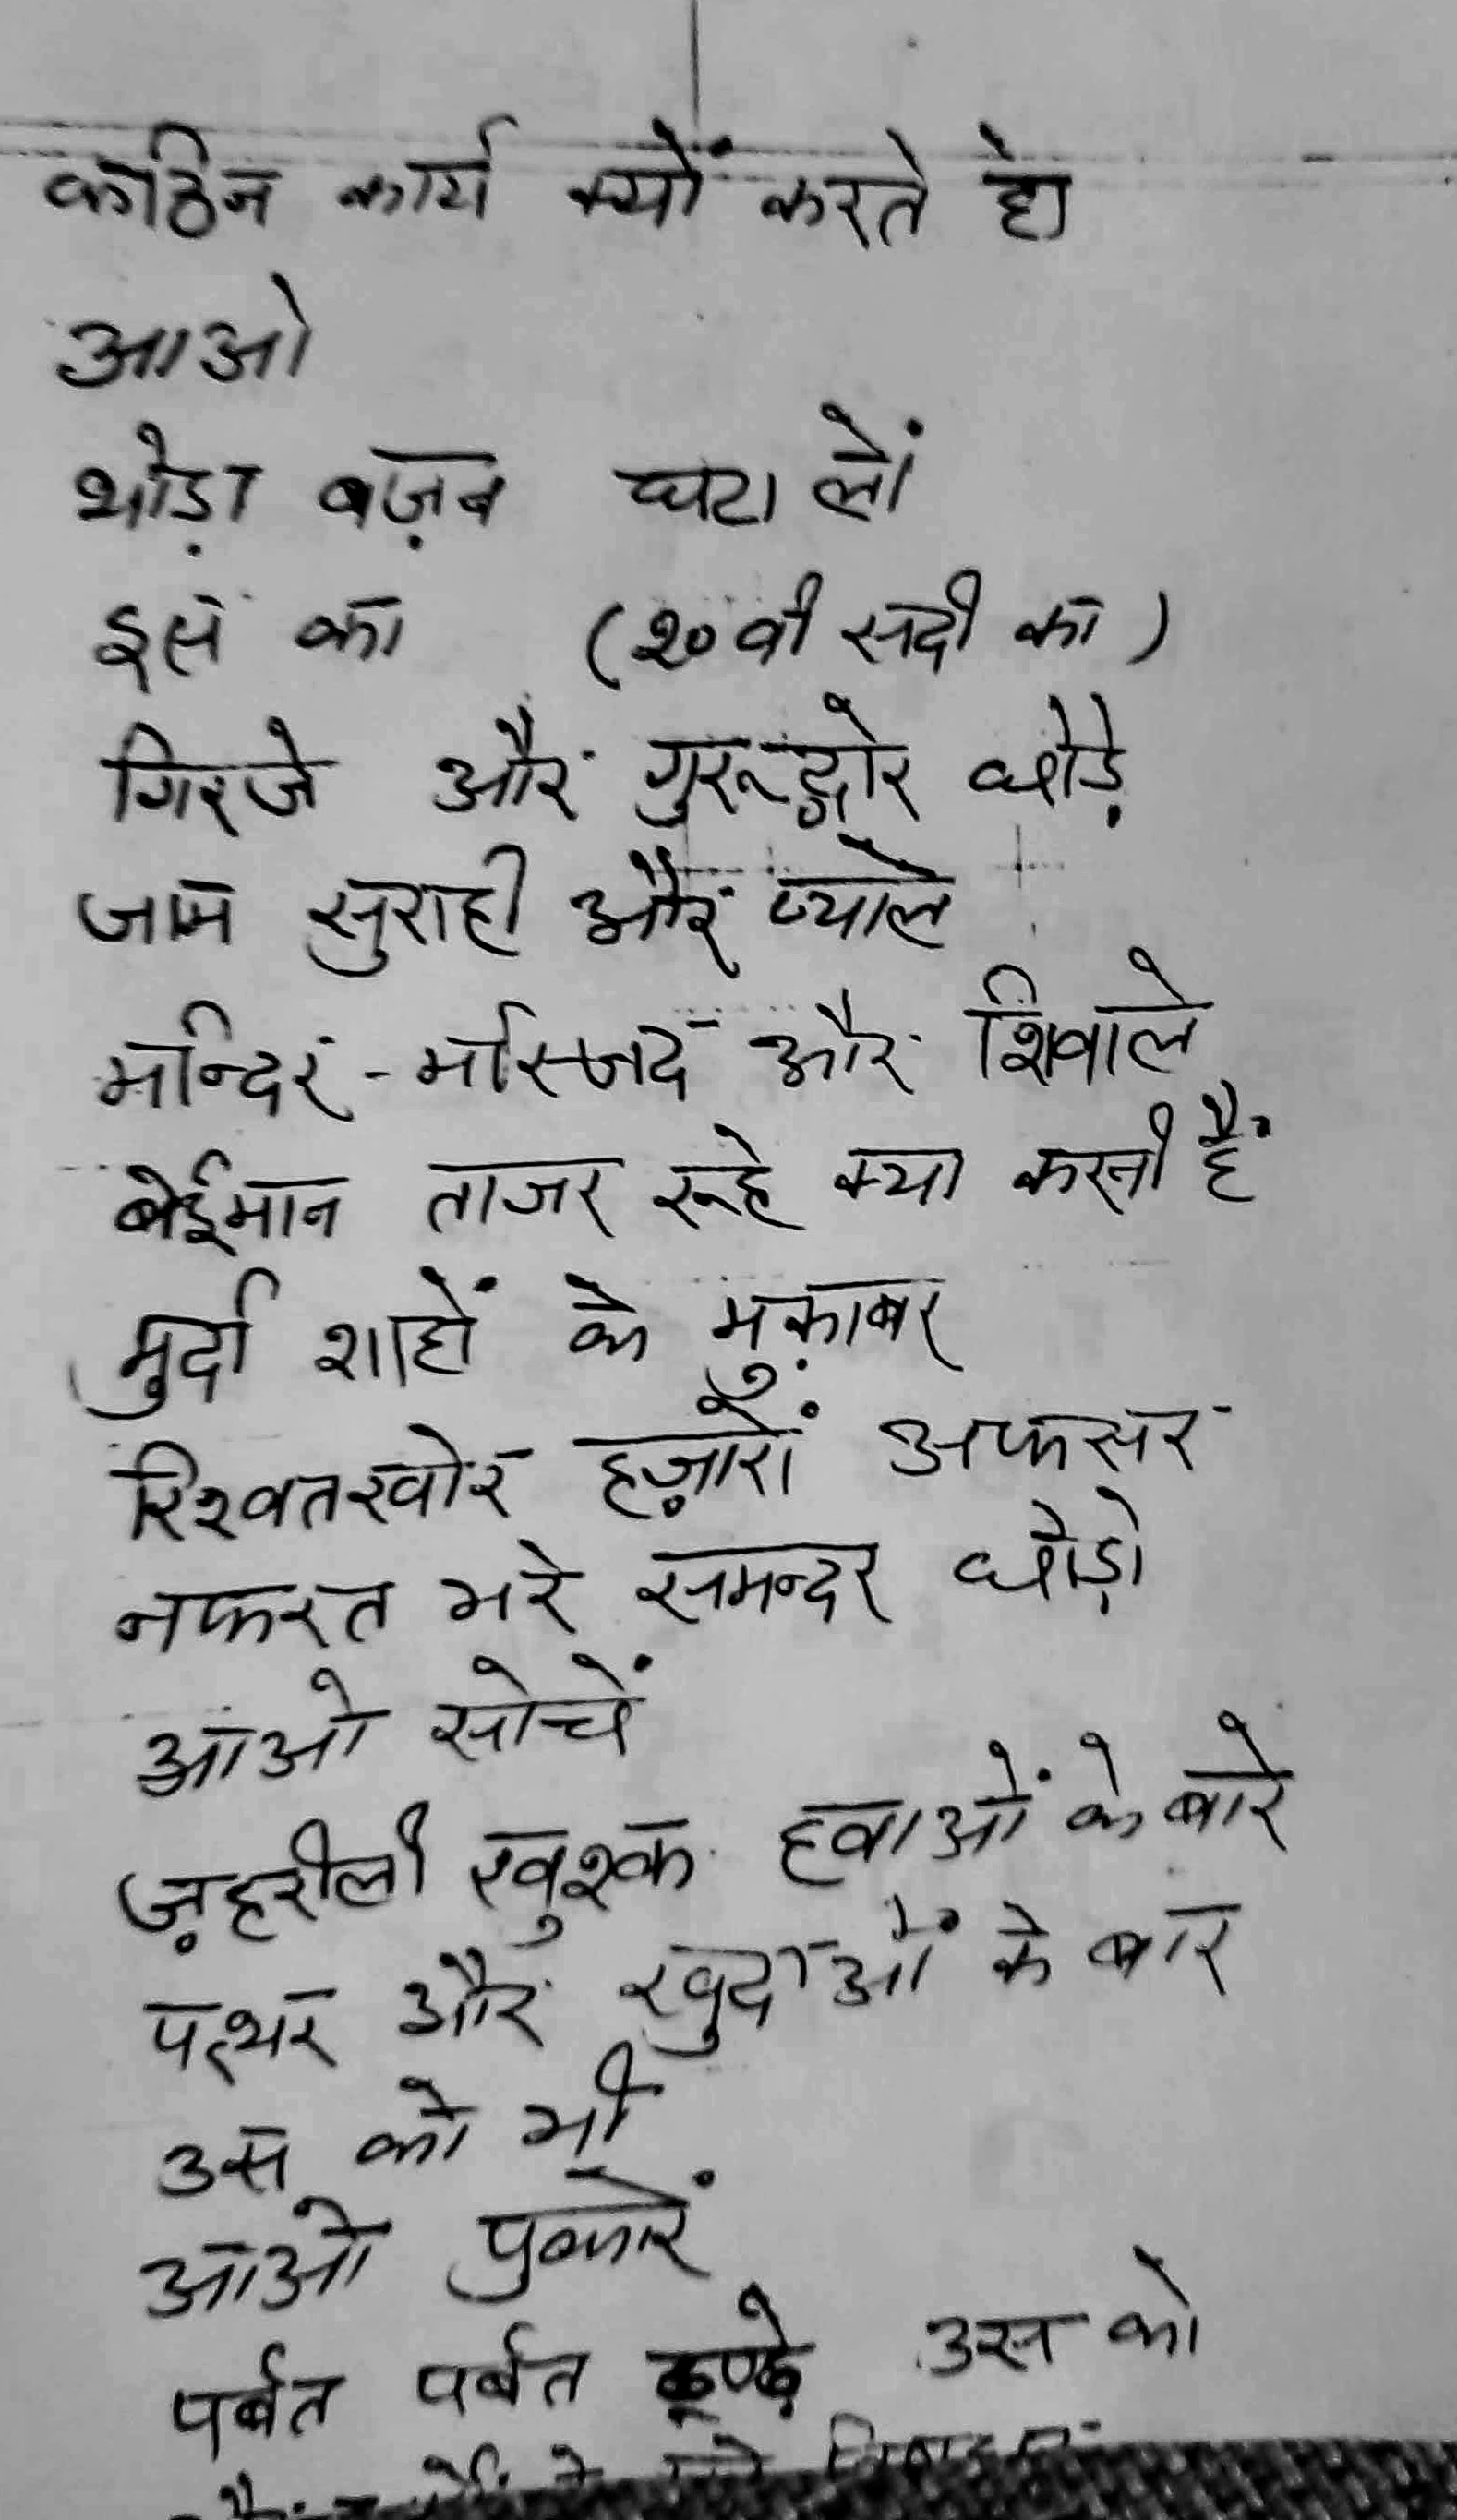 कठिन कार्य क्यों करते हो
आओ
थोड़ा बज़न घटा लें
इस का (२०वी सदी का)
गिरजे और गुरूद्वारे छोड़े
जाम सुराही और प्याले
मन्दिर - मस्जिद और शिवाले
बेईमान ताजर रूहे क्या करनी हैं
मुर्दा शाहों के मुक़ाबर
रिश्वतखोर हज़ारों अफसर
नफरत भरे समन्दर छोड़ो
आओ सोचें
ज़हरीली खुश्क हवाओं के बारे
पत्थर और खुदाओं के बारे
उस को भी
आओ पुकारें
पर्बत पर्बत ढूण्ढे उस को